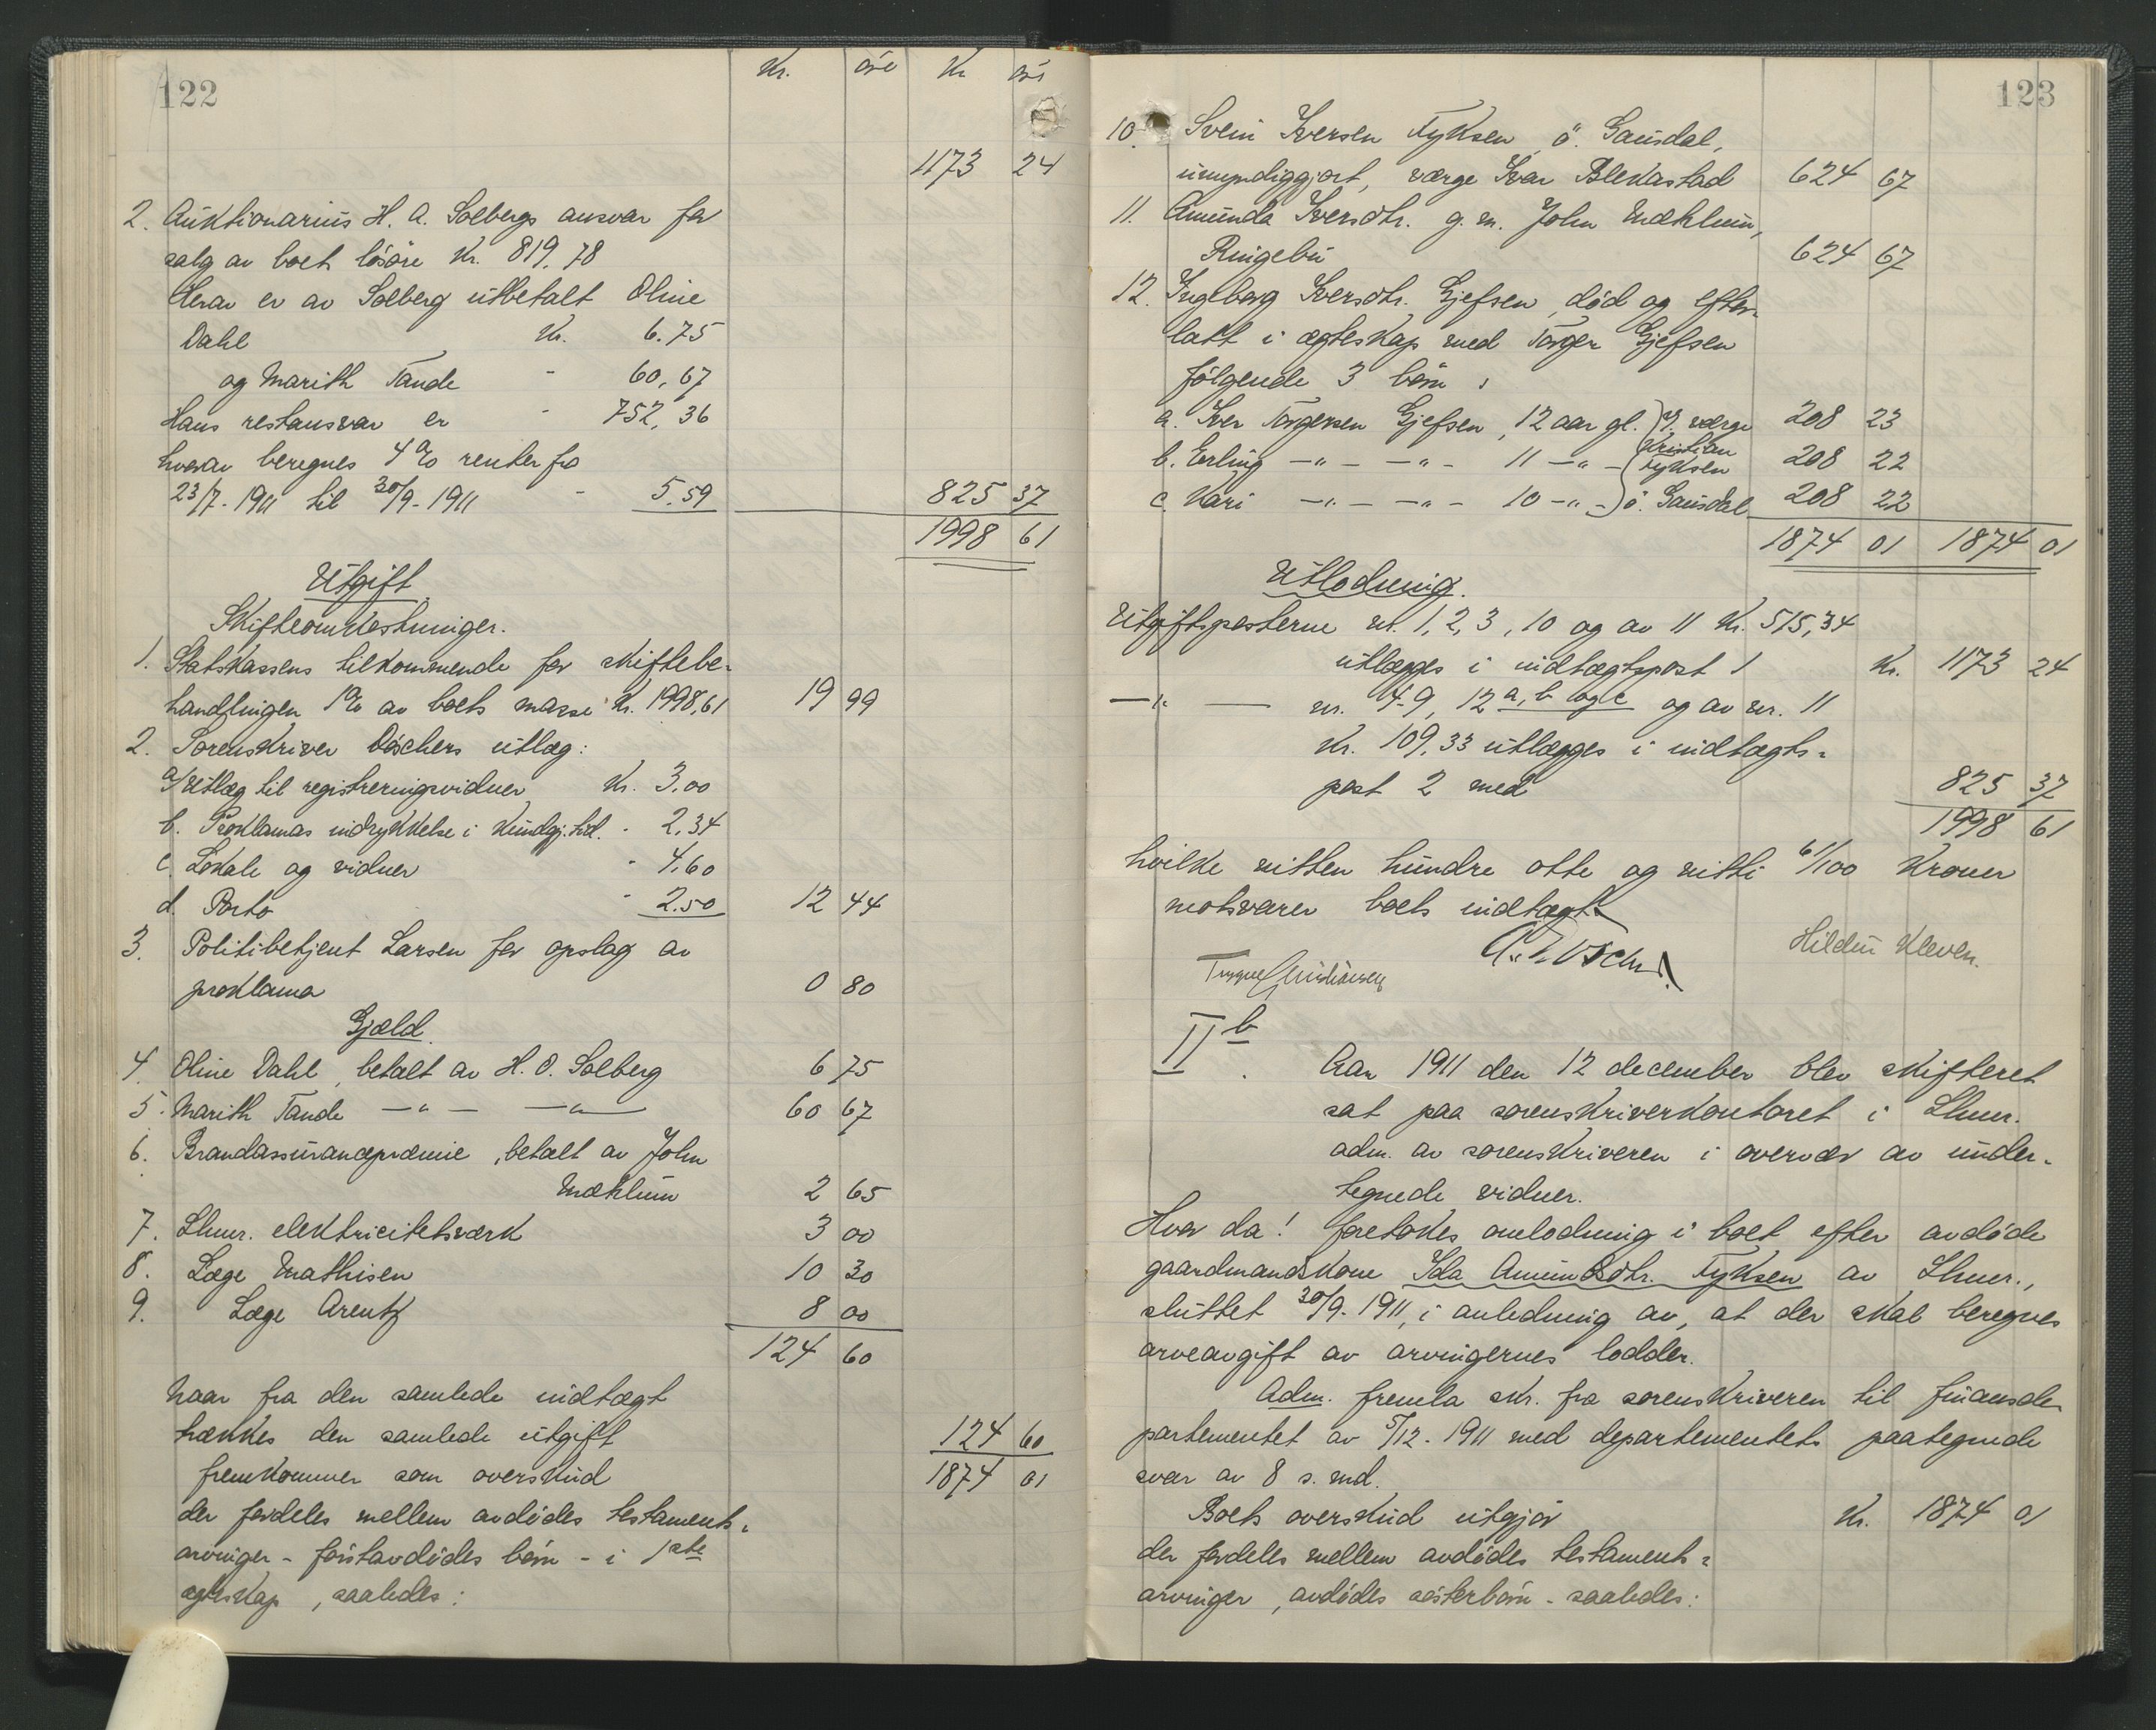 122
Kr. øre Kr øre
1173 24
2. Auktionarius H. A. Solbergs ansvar for
salg av boets løsøre Kr. 819,78
Herav er av Solberg utbetalt Oline
Dahl Kr. 6.75
og Marith Tande - 60,67
Hans restansvar er - 752,36
hvorav beregnes 4% renter fra
23/7-1911 til 30/9-1911 - 5.59 825 37
1998 61
Utgift.
Skifteomkostninger.
1. Statskassens tilkommende for skiftebe-
handlingen 1% av boets masse Kr. 1998,61 19 99
2. Sorenskriver Döschers utlæg:
a/ Utlæg til registreringsvidner Kr. 3,00
b. Proklamas indrykkelse i Kundgj.tid. - 2,34
c. Lokale og vidner - 4,60
d. Porto - 2.50 12 44
3. Politibetjent Larsen for opslag av
proklama 0 80
Gjæld.
4. Oline Dahl, betalt av H. O. Solberg 6 75
5. Marith Tande —"— —"— 60 67
6. Brandassurancepræmie, betalt av John
Mæhlum 2 65
7. Lhmr. elektricitetsværk 3 00
8. Læge Mathisen 10 30
9. Læge Arentz 8 00
124 60
Naar fra den samlede indtægt
trækkes den samlede utgift 124 60
fremkommer som overskud 1874 01
der fordeles mellem avdødes testaments-
arvinger - førstavdødes børn - i 1ste
egteskap, saaledes:
123
10. Svein Iversen Fyksen, ö. Gausdal,
umyndiggjort, værge Ivar Blekastad 624 67
11. Amunda Iversdtr. g. m. John Mæhlum,
Ringebu 624 67
12. Ingeborg Iversdtr. Gjefsen, død og efter-
latt i ægteskap med Torger Gjefsen
følgende 3 børn:
a. Iver Torgersen Gjefsen, 12 aar gl. værge 208 23
b. Erling —"— —"— 11 —"— Kristian Fyksen 208 22
c. Kari —"— —"— 10 —"— ö. Gausdal 208 22
1874 01 1874 01
Utlodning.
Utgiftsposterne nr. 1, 2, 3, 10 og av 11 Kr. 515,34
utlægges i indtægtspost 1 Kr. 1173 24
—"— — nr. 4-9, 12 a, b og c og av nr. 11
Kr. 109,33 utlægges i indtægts-
post 2 med 825 37
1998 61
hvilke nitten hundre otte og nitti 61/100 Kroner
motsvarer boets indtægt.
Hildur Kleven.
Trygve Christiansen
IIb. Aar 1911 den 12 december blev skifteret
sat paa sorenskriverkontoret i Lhmr.
adm. av sorenskriveren i overvær av under-
tegnede vidner.
Hvor da! foretokes omlodning i boet efter avdøde
gaardmandskone Ida Amundsdtr. Fyksen av Lhmr.,
sluttet 30/9-1911, i anledning av, at der skal beregnes
arveavgift av arvingernes lodder.
Adm. fremla skr. fra sorenskriveren til finansde
partementet av 5/12-1911 med departementets paategnede
svar av 8 s. md.
Boets overskud utgjør Kr. 1874 01
der fordeles mellem avdødes testaments-
arvinger, avdødes søsterbørn - saaledes: